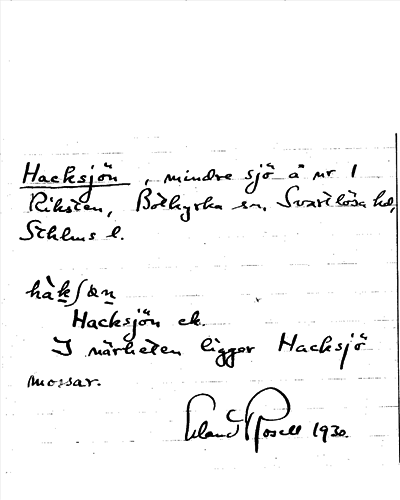 Hacksjön, mindre sjö å nr 1
Riksten, Botkyrka sn, Svartlösa hd,
Sthlms l.
hàkʃөn
Hacksjön ek.
I närheten ligger Hacksjö
mossar.
Rosell 1930.